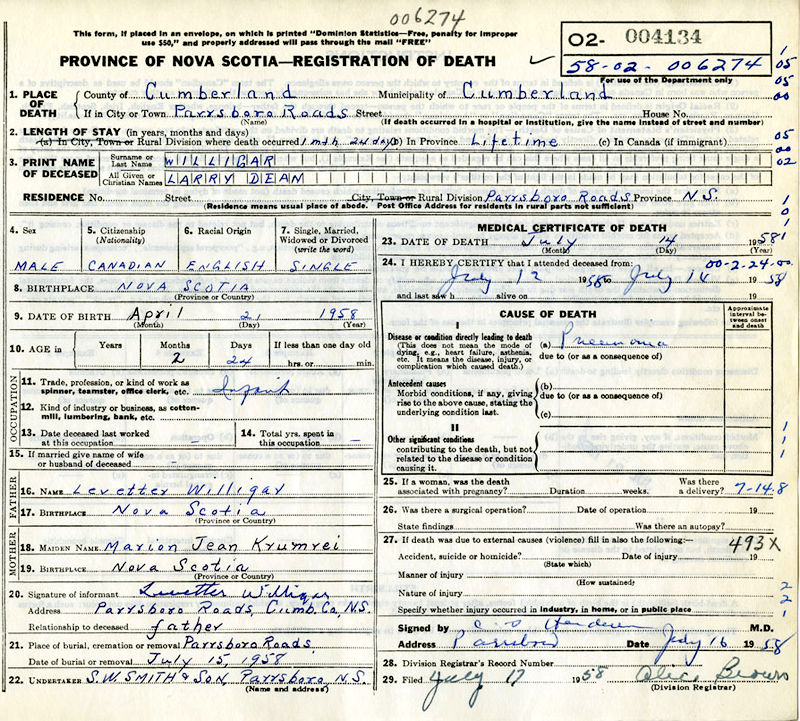 006274
This form, if placed in an envelope, on which is printed "Dominion Statistics—Free, penalty for improper
use $50," and properly addressed will pass through the mail "FREE"
PROVINCE OF NOVA SCOTIA—REGISTRATION OF DEATH
02- 004134
58-02-006274
For use of the Department only
1. PLACE OF DEATH
County of Cumberland Municipality of Cumberland
If in City or Town Parrsboro Roads Street House No.
(Name) (If death occurred in a hospital or institution, give the name instead of street and number)
2. LENGTH OF STAY (in years, months and days)
(a) In City, Town or Rural Division where death occurred 1 mth 24 days (b) In Province Lifetime (c) In Canada (if immigrant)
3. PRINT NAME OF DECEASED
Surname or Last Name WILLIGAR
All Given or Christian Names LARRY DEAN
RESIDENCE No. Street City, Town or Rural Division Parrsboro Roads Province N.S.
(Residence means usual place of abode. Post Office Address for residents in rural parts not sufficient)
4. Sex
5. Citizenship (Nationality)
6. Racial Origin
7. Single, Married, Widowed or Divorced (write the word)
MALE CANADIAN ENGLISH SINGLE
8. BIRTHPLACE NOVA SCOTIA
(Province or Country)
9. DATE OF BIRTH April 21 1958
(Month) (Day) (Year)
10. AGE in Years Months Days If less than one day old
2 24 hrs. or min.
OCCUPATION
11. Trade, profession, or kind of work as spinner, teamster, office clerk, etc. Infant
12. Kind of industry or business, as cotton-mill, lumbering, bank, etc.
13. Date deceased last worked at this occupation –
14. Total yrs. spent in this occupation –
15. If married give name of wife or husband of deceased –
FATHER
16. NAME Levetter Willigar
17. BIRTHPLACE Nova Scotia
(Province or Country)
MOTHER
18. MAIDEN NAME Marion Jean Krumrei
19. BIRTHPLACE Nova Scotia
(Province or Country)
20. Signature of informant Levetter Willigar
Address Parrsboro Roads, Cumb. Co, N.S.
Relationship to deceased father
21. Place of burial, cremation or removal Parrsboro Roads
Date of burial or removal July 15, 1958
22. UNDERTAKER S.W. SMITH & SON, Parrsboro N.S.
(Name and address)
MEDICAL CERTIFICATE OF DEATH
23. DATE OF DEATH July 14 1958
(Month) (Day) (Year)
24. I HEREBY CERTIFY that I attended deceased from: 00-2-24-00
July 12 1958 to July 14 1958
and last saw h alive on 19
CAUSE OF DEATH
Approximate interval between onset and death
I
Disease or condition directly leading to death
(This does not mean the mode of dying, e.g., heart failure, asthenia, etc. It means the disease, injury, or complication which caused death.)
(a) Pneumonia
due to (or as a consequence of)
Antecedent causes
Morbid conditions, if any, giving rise to the above cause, stating the underlying condition last.
(b)
due to (or as a consequence of)
(c)
II
Other significant conditions
contributing to the death, but not related to the disease or condition causing it.
25. If a woman, was the death associated with pregnancy? Duration weeks. Was there a delivery? 7-14-8
26. Was there a surgical operation? Date of operation 19
State findings Was there an autopsy?
27. If death was due to external causes (violence) fill in also the following:— 493X
Accident, suicide or homicide? Date of injury 19
(State which)
Manner of injury
(How sustained)
Nature of injury
Specify whether injury occurred in industry, in home, or in public place
Signed by Henderson M.D.
Address Parrsboro Date July 16 1958
28. Division Registrar's Record Number
29. Filed July 17 1958 Brown
(Division Registrar)
1
05
05
00
05
00
02
1
0
1
1
1
1
1
2
2
1